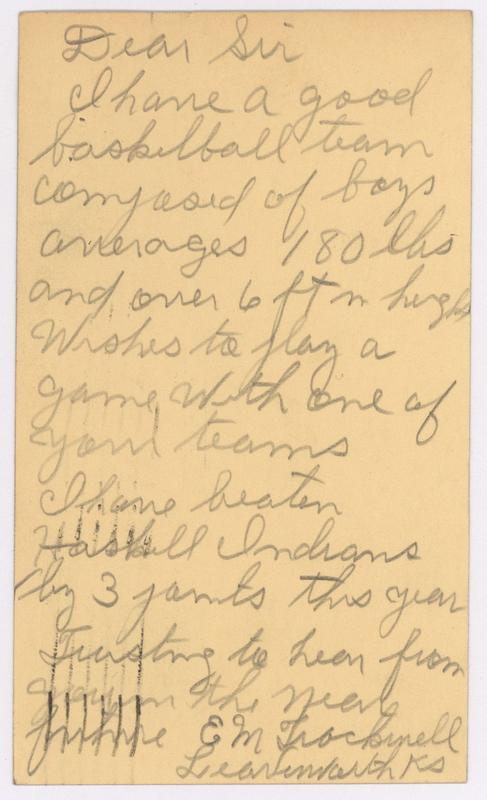 Dear Sir
I have a good
basketball team
composed of boys
averages 180 lbs
and over 6 ft in height
Wishes to play a
game With one of
your teams
I have beaten
Haskell Indians
by 3 points this year
Trusting to hear from
you in the near
future E M Trockmell
Leavenworth Ks